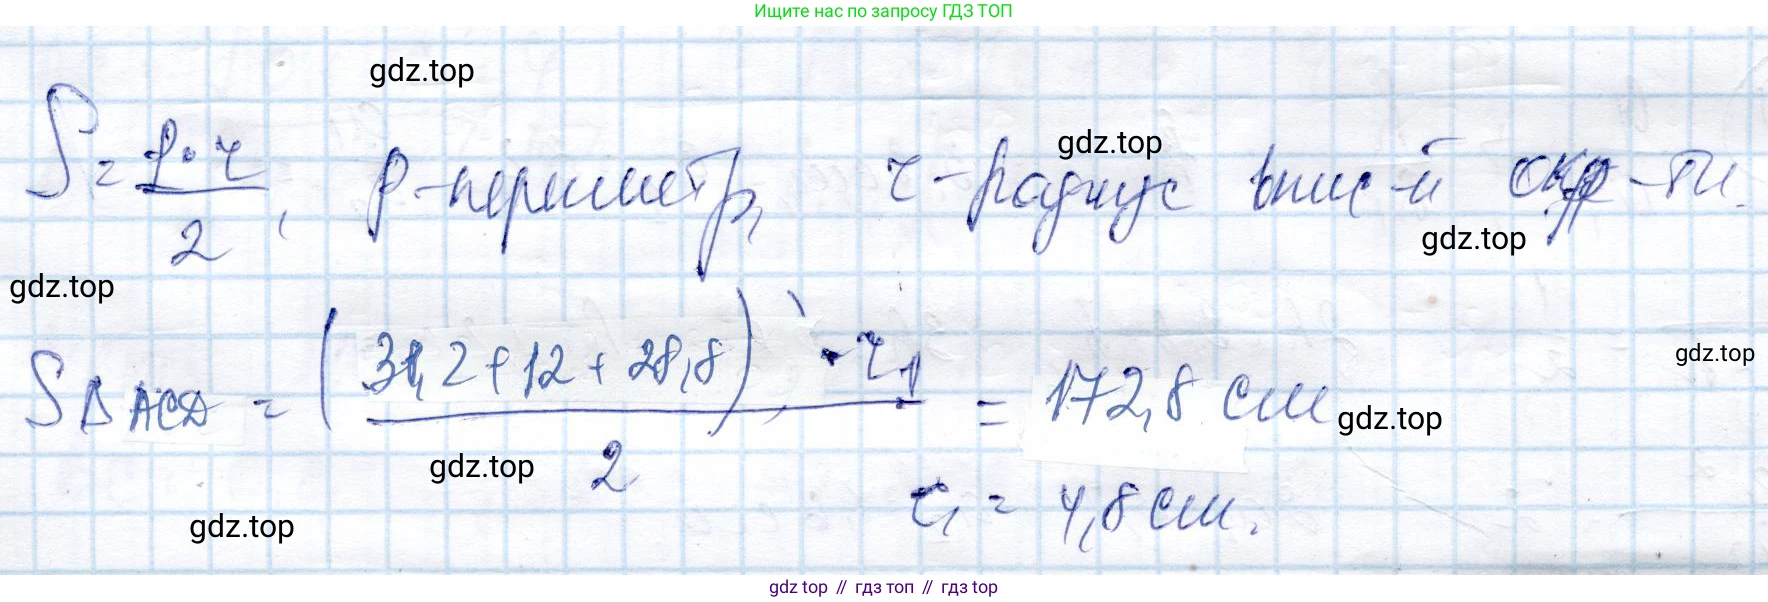 Ищите нас по запросу ГДЗ ТОП
gdz.top
S = P·r / 2, P-периметр, r-радиус впис-й окр-ти.
gdz.top
gdz.top
gdz.top
S Δ ACD = (31,2 + 12 + 28,8) · r₁ / 2 = 172,8 см
gdz.top
gdz.top
gdz.top
r₁ = 4,8 см.
gdz.top
gdz top // гдз топ // gdz top